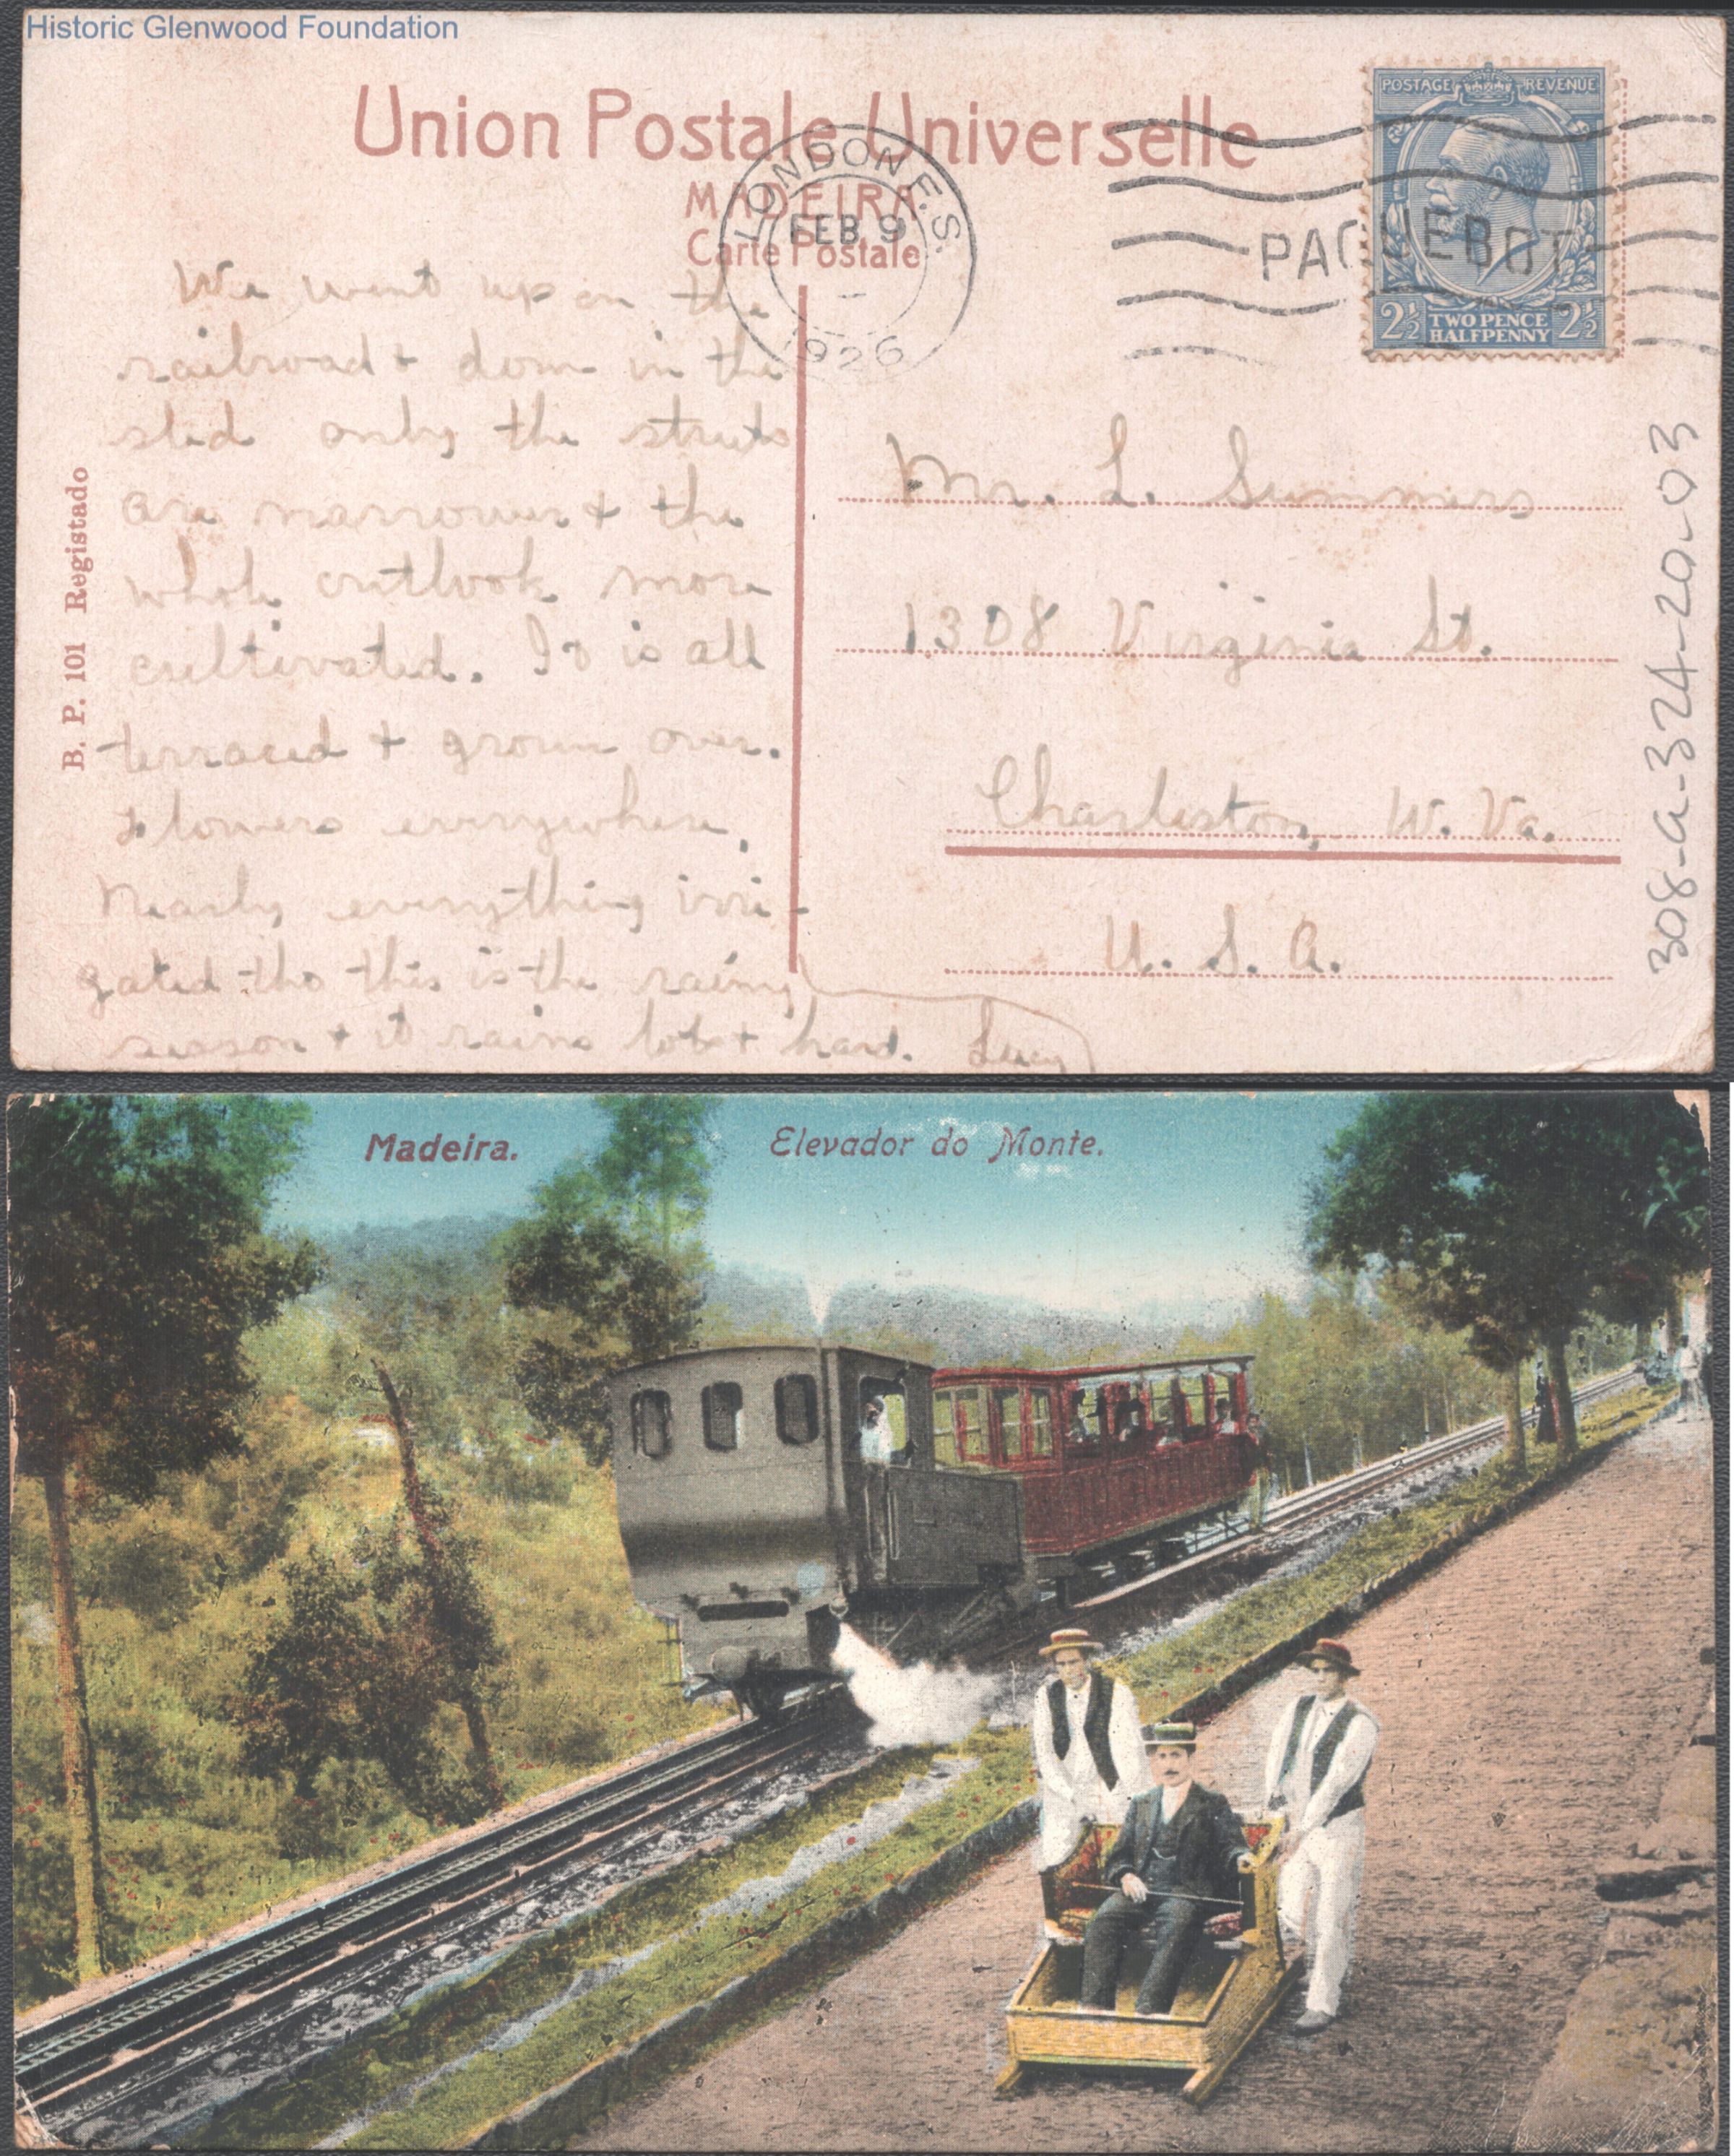 Historic Glenwood Foundation
Union Postale Universelle
MADEIRA
Carte Postale
LONDON F.S.
FEB 9
1926
PAQUEBOT
POSTAGE REVENUE
2½ TWO PENCE HALFPENNY 2½
B. P. 101 Registado
We went up on the
railroad + down in the
sled only the streets
are narrower + the
whole outlook more
cultivated. It is all
terraced + grown over.
Flowers everywhere.
Nearly everything irri-
gated tho this is the rainy
season + it rains lots + hard. Lucy
Mr. L. Summers
1308 Virginia St.
Charleston, W. Va.
U. S. A.
308-a-324-20-03
Madeira. Elevador do Monte.